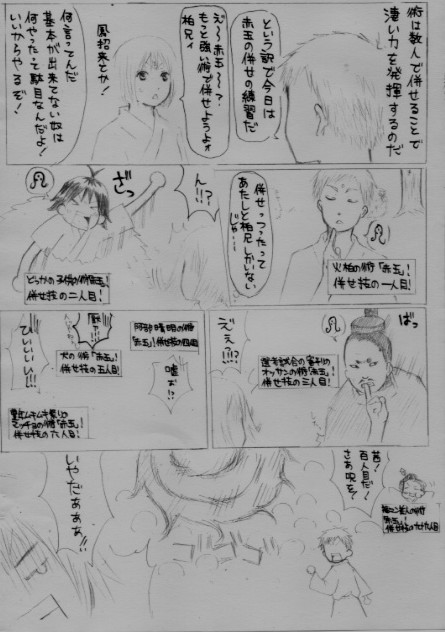 術は数人で併せることで
凄い力を発揮するのだ
という訳で今日は
赤玉の併せの練習だ
え～～赤玉～～？
もっと強い術で併せようよォ
柏兄ィ
鳳招来とか！
何言ってんだ
基本が出来てない奴は
何やったって駄目なんだよ！
いいからやるぞ！
併せっつったって
あたしと柏兄しかいない
じゃ…
火柏の術「赤玉」！
併せ技の一人目！
ん!!?
ざっ
どっかの子供の術「赤玉」！
併せ技の二人目！
ばっ
選考試合の審判の
オッサンの術「赤玉」！
併せ技の三人目！
ええ!!?
阿部晴明の術
「赤玉」！併せ技の四人目
嘘ぉ!?
犬の術「赤玉」！
併せ技の五人目！
ひいいいい!!!
マッチョの術「赤玉」！
併せ技の六人目！
茜！
百人目だ！
さあ呪を！
いやだあぁぁぁ!!